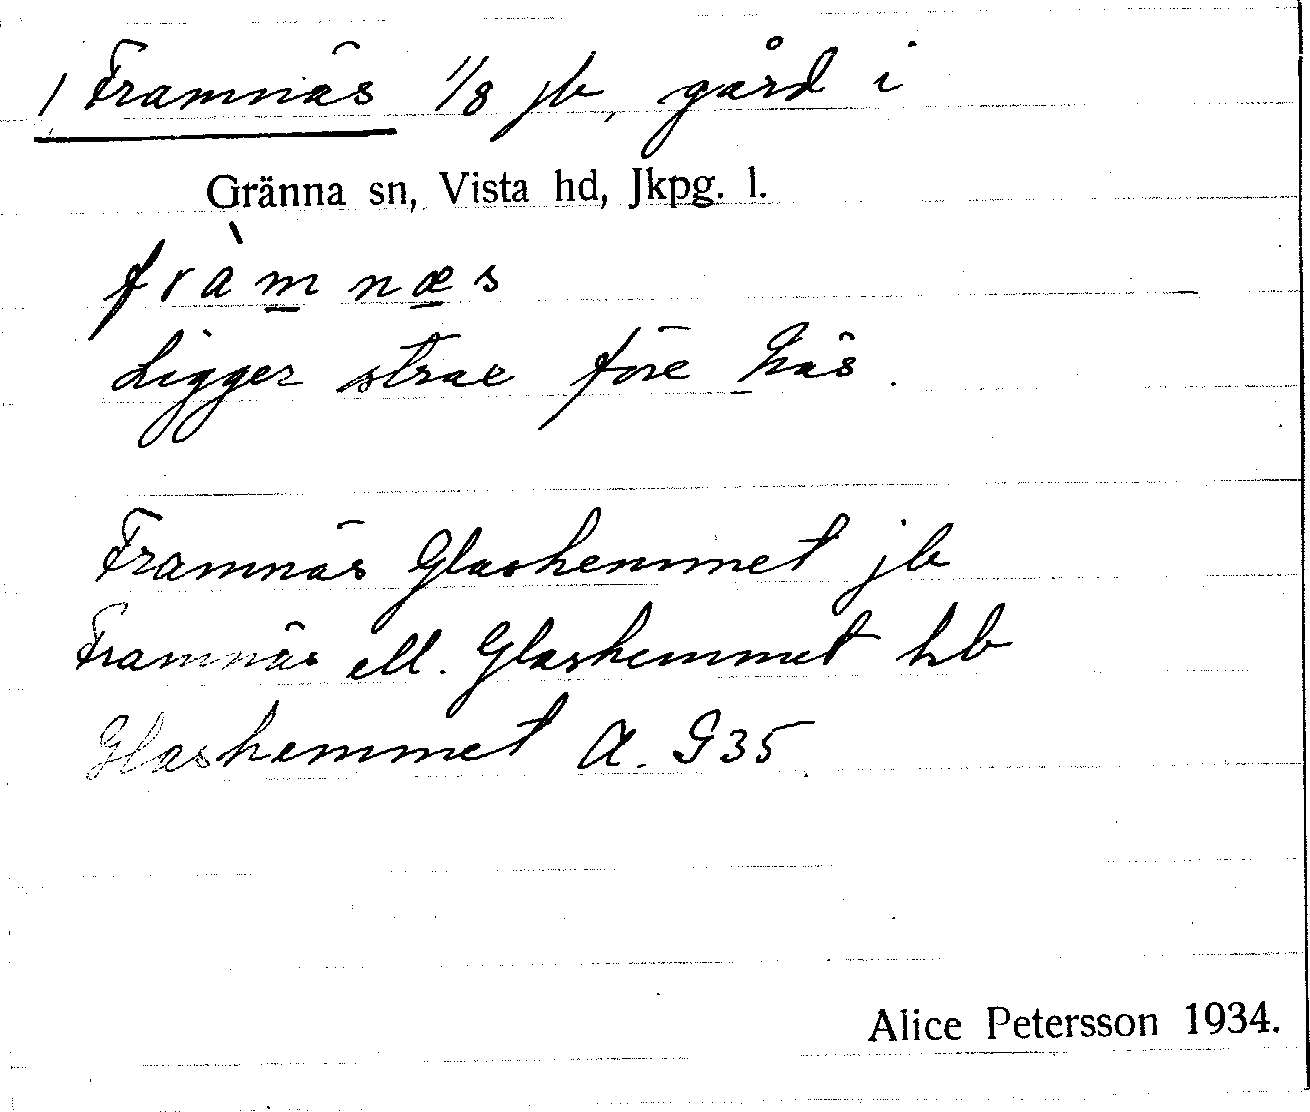 1 Framnäs 1/8 jb, gård i
Gränna sn, Vista hd, Jkpg. l.
fràmnæs
Ligger strax före
Framnäs Glashemmet jb
Framnäs ell. Glashemmet hb
Glashemmet A. G35
Alice Petersson 1934.